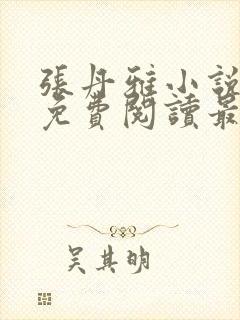 張丹雅小說
免費閱讀最
吳其明